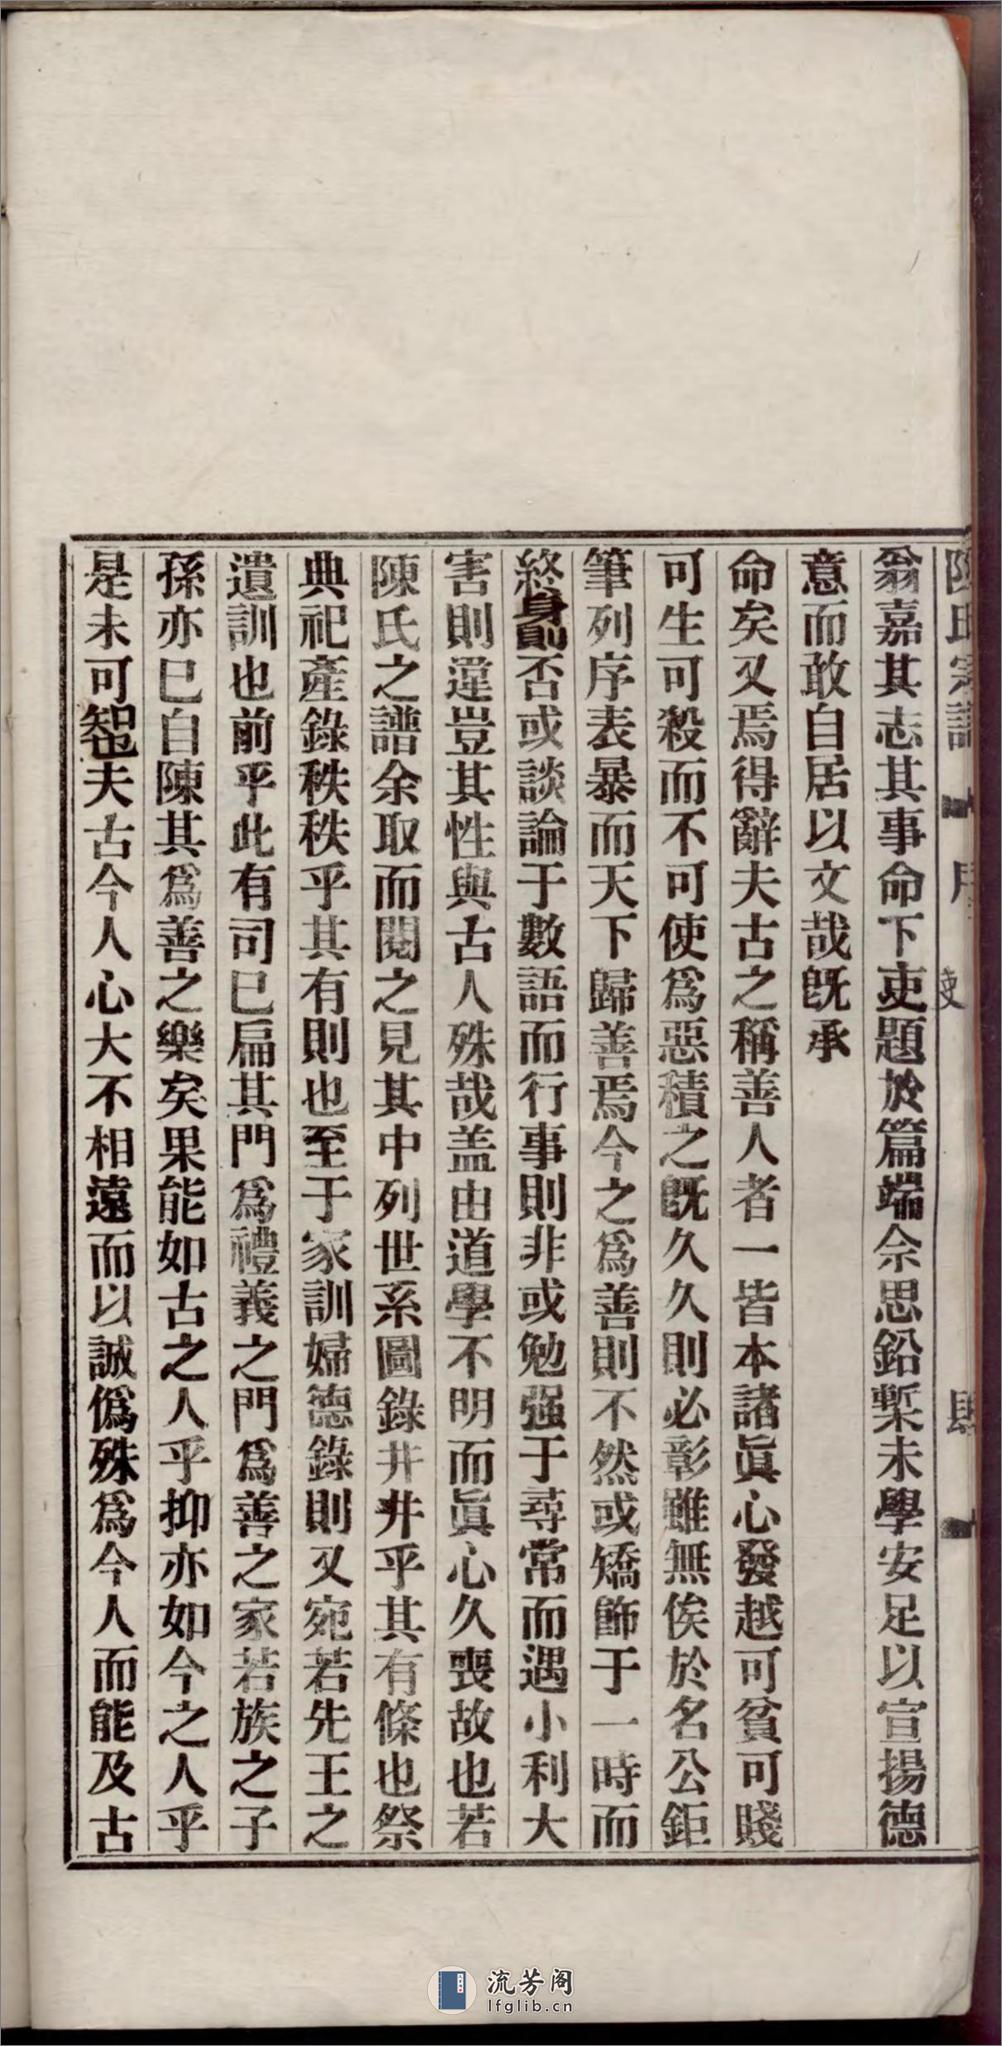 翁嘉其志其事命下吏題於篇端余思鉛槧未學安足以宣揚德
意而敢自居以文哉旣承
命矣又焉得辭夫古之稱善人者一皆本諸眞心發越可貧可賤
可生可殺而不可使爲惡積之旣久久則必彰雖無俟於名公鉅
筆列序表暴而天下歸善焉今之爲善則不然或矯飾于一時而
終身則否或談論于數語而行事則非或勉强于尋常而遇小利大
害則違豈其性與古人殊哉盖由道學不明而眞心久喪故也若
陳氏之譜余取而閱之見其中列世系圖錄井井乎其有條也祭
典祀產錄秩秩乎其有則也至于家訓婦德錄則又宛若先王之
遺訓也前乎此有司巳扁其門爲禮義之門爲善之家若族之子
孫亦巳自陳其爲善之樂矣果能如古之人乎抑亦如今之人乎
是未可智也夫古今人心大不相遠而以誠僞殊爲今人而能及古
流芳阁
lfglib.cn